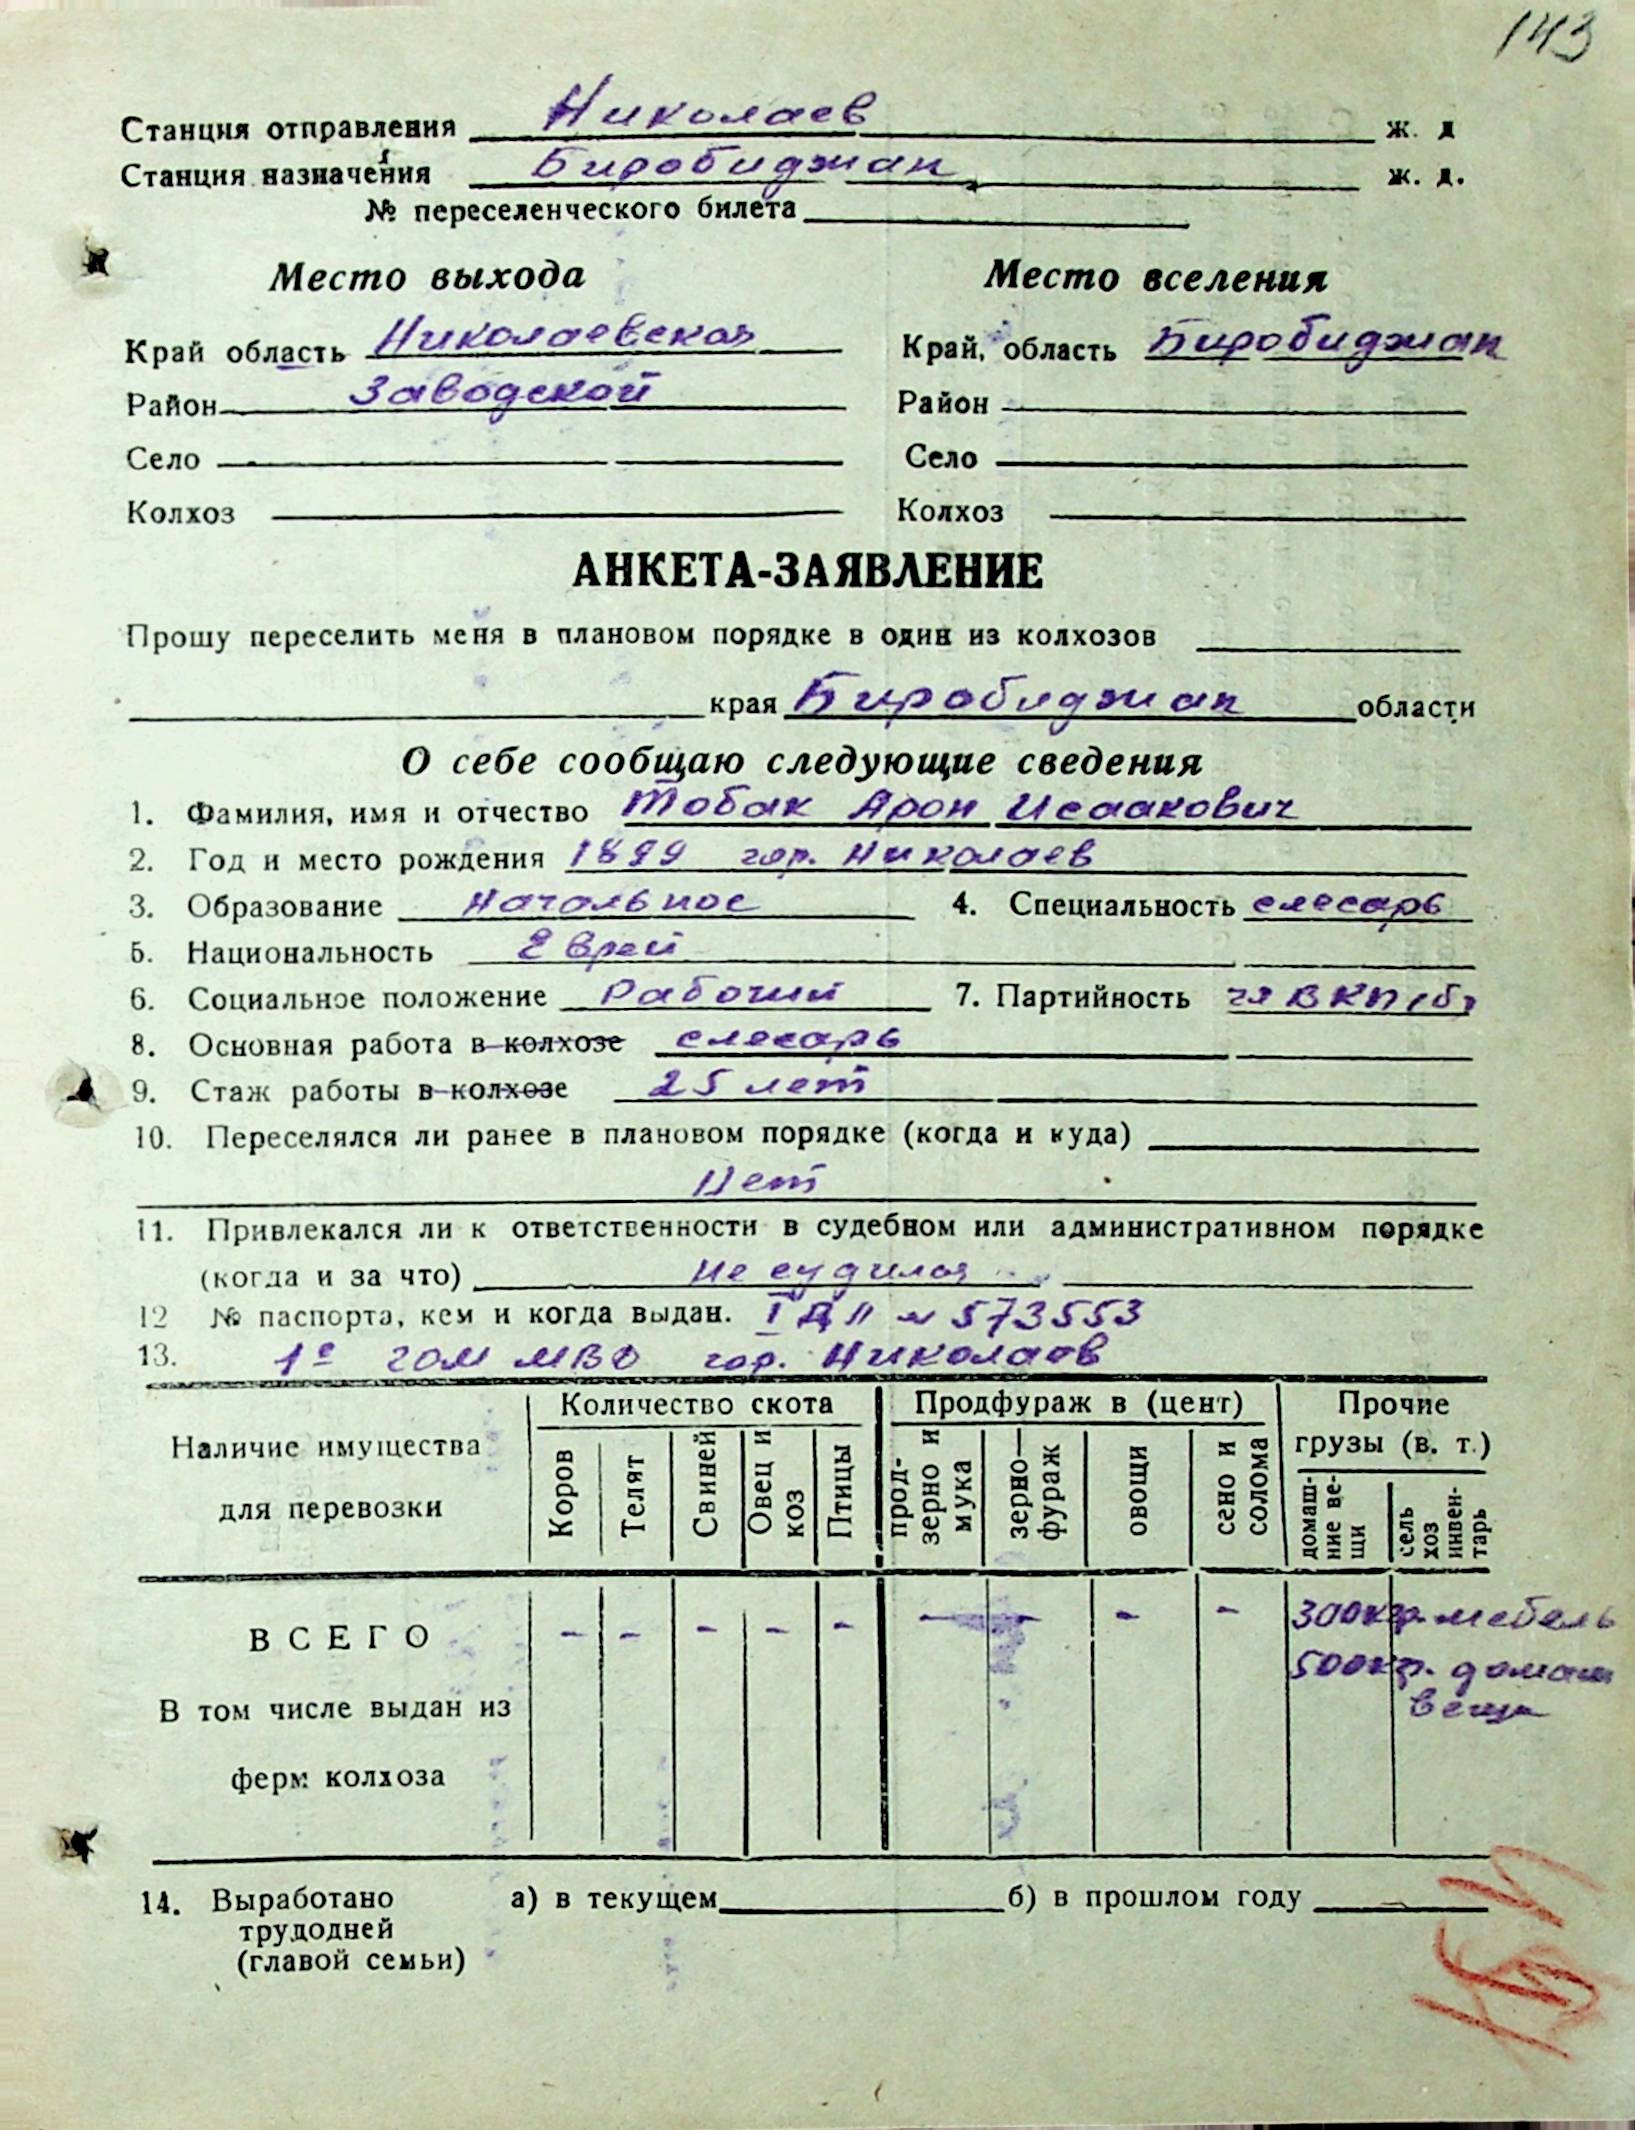 143
Станция отправления Николаев ж. д
Станция назначения Биробиджан ж. д.
№ переселенческого билета
Место выхода Место вселения
Край область Николаевская Край, область Биробиджан
Район Заводской Район
Село Село
Колхоз Колхоз
АНКЕТА-ЗАЯВЛЕНИЕ
Прошу переселить меня в плановом порядке в один из колхозов
края Биробиджан области
О себе сообщаю следующие сведения
1. Фамилия, имя и отчество Тобак Арон Исаакович
2. Год и место рождения 1899 гор. Николаев
3. Образование Начальное 4. Специальность слесарь
5. Национальность Еврей
6. Социальное положение Рабочий 7. Партийность ВКП(б)
8. Основная работа в колхозе слесарь
9. Стаж работы в колхозе 25 лет
10. Переселялся ли ранее в плановом порядке (когда и куда)
Нет
11. Привлекался ли к ответственности в судебном или административном порядке
(когда и за что) Не судился
12 № паспорта, кем и когда выдан. 573553
13. 1е ГОМ МВД гор. Николаев
Наличие имущества для перевозки
Количество скота
Продфураж в (цент)
Прочие грузы (в. т.)
Коров
Телят
Свиней
Овец и коз
Птицы
прод-зерно и мука
зерно—фураж
овощи
сено и солома
домаш-ние ве-щи
сель хоз инвен-тарь
ВСЕГО - - - - - — - - 300кгр. мебель
500кгр. домаш
вещи
В том числе выдан из
ферм колхоза
14. Выработано а) в текущем б) в прошлом году
трудодней
(главой семьи)